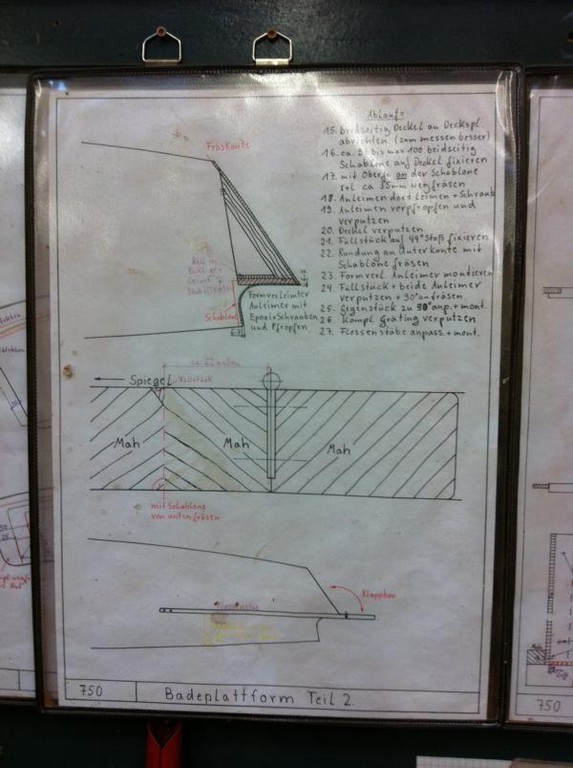 Ablauf:
15. beidseitig Deckel an Deckspl.
abrichten (zum messen besser)
16. ca. bis max 100 beidseitig
Schablone auf Deckel fixieren
17. mit Oberfr. an der Schablone
ca 35mm wegfräsen
18. Anleimen dort leimen + Schraub
19. Anleimen verpfropfen und
verputzen
20. Deckel verputzen
21. Füllstück auf 45° Stoß fixieren
22. Rundung an Unterkante mit
Schablone fräsen
23. Formverl. Anleimer montieren
24. Füllstück + beide Anleimer
verputzen + 30° anfräsen
25. Gegenstück zu 90° anp. + mont.
26. Kompl. Gräting verputzen
27. Flossenstäbe anpass. + mont.
Fräskante
Schablone
Formverleimter
Anleimer mit
Epoxi + Schrauben
und Pfropfen
Spiegel
Füllstück
Mah
Mah
Mah
mit Schablone
von unten fräsen
Klappbar
750
Badeplattform Teil 2.
750